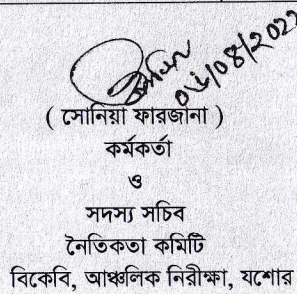 ০৬/০৪/২০২২
( সোনিয়া ফারজানা )
কর্মকর্তা
ও
সদস্য সচিব
নৈতিকতা কমিটি
বিকেবি, আঞ্চলিক নিরীক্ষা, যশোর